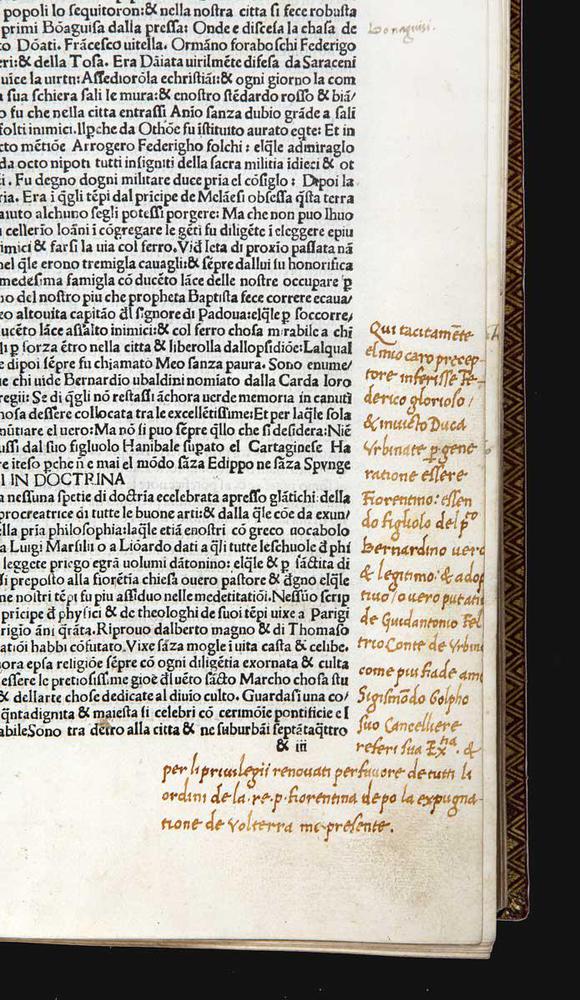 popoli lo sequitoron:& nella nostra citta si fece robusta
primi Bōaguisa dalla pressa: Onde e discesa la chasa de
Dōati. Frācesco uitella. Ormāno foraboschi Federigo
eri:& della Tosa. Era Dāiata uirilmēte difesa da Saraceni
uīce la uirtu: Assediorōla echristiāi:& ogni giorno la com
a sua schiera sali le mura:& enostro stēdardo rosso & biā/
o fu che nella citta entrassi Anio sanza dubio grāde a sali
folti inimici. Ilp̄che da Othōe fu istituito aurato eq̄te: Et in
cto mētiōe Arrogero Federigho folchi: elq̄le admiraglo
da octo nipoti tutti insigniti della sacra militia idieci & ot
i. Fu degno dogni militare duce pria el cōsiglo: Dipoi la
ria. Era i q̄gli tēpi dal pricipe de Melāesi obsessa q̄sta terra
aiuto alchuno segli potessi porgere: Ma che non puo lhuo
cellerio Ioāni i cōgregare le gēti fu diligēte i eleggere epiu
imici & farsi la uia col ferro. Vid̄ leta di proxio passata nā
nel q̄le erono tremigla cauagli:& sēpre dallui fu honorifica
medesima famigla cō ducēto lāce delle nostre occupare p̄
no del nostro piu che propheta Baptista fece correre ecaua/
eo altouita capitāo d̄l signore di Padoua:elq̄le p̄ soccorre/
ucēto lāce assalto inimici:& col ferro chosa mirabile a chi
li p̄ forza ētro nella citta & liberolla dallopsidiōe: Lalqual
e dipoi sēpre fu chiamato Meo sanza paura. Sono enume/
ue chi uide Bernardio ubaldini nomiato dalla Carda loro
regii: Se di q̄gli nō restassi āchora uerde memoria in canuti
hosa dessere collocata tra le excellētissime: Et per laq̄le sola
mūtiare el uero: Ma nō si puo sēpre q̄llo che si desidera: Niē
ussi dal suo figluolo Hanibale supato el Cartaginese Ha
re iteso pche n̄ e mai el mōdo sāza Edippo ne sāza Spynge
I IN DOCTRINA
a nessuna spetie di doctria ecelebrata apresso glātichi della
procreatrice di tutte le buone arti:& dalla q̄le cōe da exun/
ella pria philosophia: laq̄le etiā enostri cō greco uocabolo
a Luigi Marsilii o a Liōardo dati a q̄li tutte leschuole d̄ phi
leggete priego egrā uolumi dātonino: elq̄le & p̄ sāctita di
si preposto alla fiorētia chiesa ouero pastore & d̄gno elq̄le
ne nostri tēpi fu piu assiduo nelle medetitatiōi. Nessūo scrip
pricipe d̄ physici & de theologhi de suoi tēpi uixe a Parigi
rigio āni q̄rāta. Riprouo dalberto magno & di Thomaso
atiōi habbi cōfutato. Vixe sāza mogle i uita casta & celibe.
hora epsa religiōe sēpre cō ogni diligētia exornata & culta
essere le pretiosiss.me gioe d̄l uēto sācto Marcho chosa stu
& dellarte chose dedicate al diuio culto. Guardasi una co/
q̄nta dignita & maiesta si celebri cō cerimōie pontificie e l
abile Sono tra dētro alla citta & ne suburbāi septātaqttro
& iii
Bonaguisi.
Qui tacitamēte
el mio caro precep-
tore inferisse Fe-
derico glorioso /
& inuicto Duca
Vrbinate p̱ gene
ratione essere
Fiorentino: essen
do figliolo del p.to
Bernardino uero
& legitimo: & adop
tiuo / ouero putati
de Guidantonio Fel
trio Conte de Vrbino
come piu fiade am
Sigismōdo Golpho
suo Cancelliere
referi sua Ex.tia. &
per li priuilegii renouati per fauore de tutti li
ordini de la .re.p. fiorentina depo la expugna-
tione de Volterra me presente.